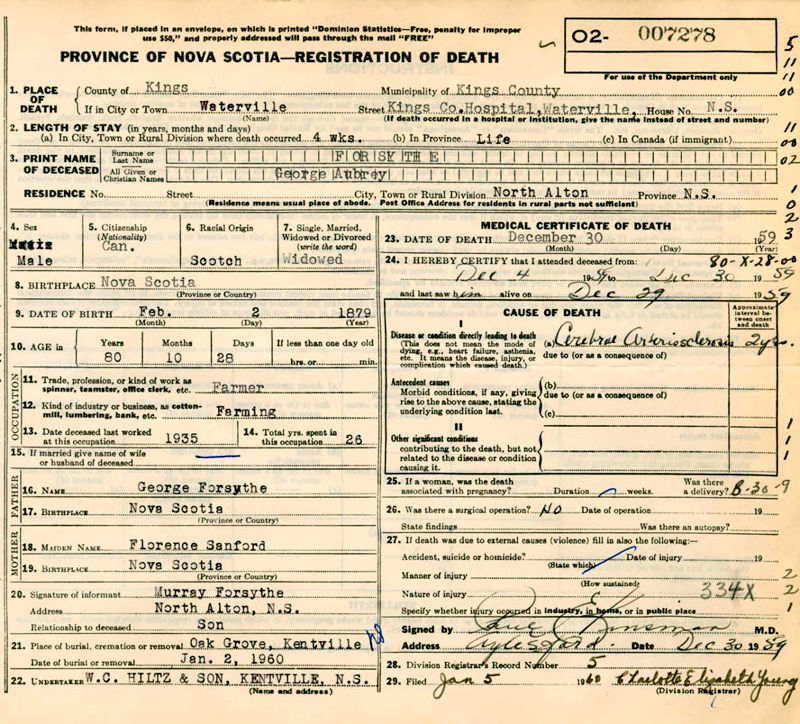 This form, if placed in an envelope, on which is printed "Dominion Statistics—Free, penalty for improper
use $50," and properly addressed will pass through the mail "FREE"
PROVINCE OF NOVA SCOTIA—REGISTRATION OF DEATH
O2- 007278
For use of the Department only
5
11
11
00
1. PLACE OF DEATH
County of Kings Municipality of Kings County
If in City or Town Waterville Street Kings Co.Hospital,Waterville, House No. N.S.
(Name) (If death occurred in a hospital or institution, give the name instead of street and number)
2. LENGTH OF STAY (in years, months and days) 11
(a) In City, Town or Rural Division where death occurred 4 wks. (b) In Province Life (c) In Canada (if immigrant) 00
3. PRINT NAME OF DECEASED
Surname or Last Name FORSYTHE 02
All Given or Christian Names George Aubrey
RESIDENCE No. Street City, Town or Rural Division North Alton Province N.S.
(Residence means usual place of abode. Post Office Address for residents in rural parts not sufficient)
1
0
2
3
4. Sex Male
5. Citizenship (Nationality) Can.
6. Racial Origin Scotch
7. Single, Married, Widowed or Divorced (write the word) Widowed
8. BIRTHPLACE Nova Scotia
(Province or Country)
9. DATE OF BIRTH Feb. 2 1879
(Month) (Day) (Year)
10. AGE in Years Months Days If less than one day old
80 10 28 hrs. or min.
OCCUPATION
11. Trade, profession, or kind of work as spinner, teamster, office clerk, etc. Farmer
12. Kind of industry or business, as cotton-mill, lumbering, bank, etc. Farming
13. Date deceased last worked at this occupation 1935
14. Total yrs. spent in this occupation 26
15. If married give name of wife or husband of deceased
FATHER
16. NAME George Forsythe
17. BIRTHPLACE Nova Scotia
(Province or Country)
MOTHER
18. MAIDEN NAME Florence Sanford
19. BIRTHPLACE Nova Scotia
(Province or Country)
20. Signature of informant Murray Forsythe
Address North Alton, N.S.
Relationship to deceased Son
21. Place of burial, cremation or removal Oak Grove, Kentville NS
Date of burial or removal Jan. 2, 1960
22. UNDERTAKER W.C. HILTZ & SON, KENTVILLE, N.S.
(Name and address)
MEDICAL CERTIFICATE OF DEATH
23. DATE OF DEATH December 30 1959
(Month) (Day) (Year)
24. I HEREBY CERTIFY that I attended deceased from: 80-X-28-00
Dec 4 1959 to Dec 30 1959
and last saw him alive on Dec 29 1959
CAUSE OF DEATH
Approximate interval between onset and death
I
Disease or condition directly leading to death
(This does not mean the mode of dying, e.g., heart failure, asthenia, etc. It means the disease, injury, or complication which caused death.)
(a) Cerebral Arteriosclerosis 2yrs
due to (or as a consequence of)
Antecedent causes
Morbid conditions, if any, giving rise to the above cause, stating the underlying condition last.
(b)
due to (or as a consequence of)
(c)
II
Other significant conditions
contributing to the death, but not related to the disease or condition causing it.
1
1
1
25. If a woman, was the death associated with pregnancy? Duration weeks. Was there a delivery? B-30-9
26. Was there a surgical operation? NO Date of operation 19
State findings Was there an autopsy?
27. If death was due to external causes (violence) fill in also the following:—
Accident, suicide or homicide? Date of injury 19
(State which)
Manner of injury 2
(How sustained)
Nature of injury 334X 2
Specify whether injury occurred in industry, in home, or in public place 1
Signed by Kinsman M.D.
Address Aylesford. Date Dec 30 1959
28. Division Registrar's Record Number 5
29. Filed Jan 5 1960 Charlotte Elizabeth Young
(Division Registrar)